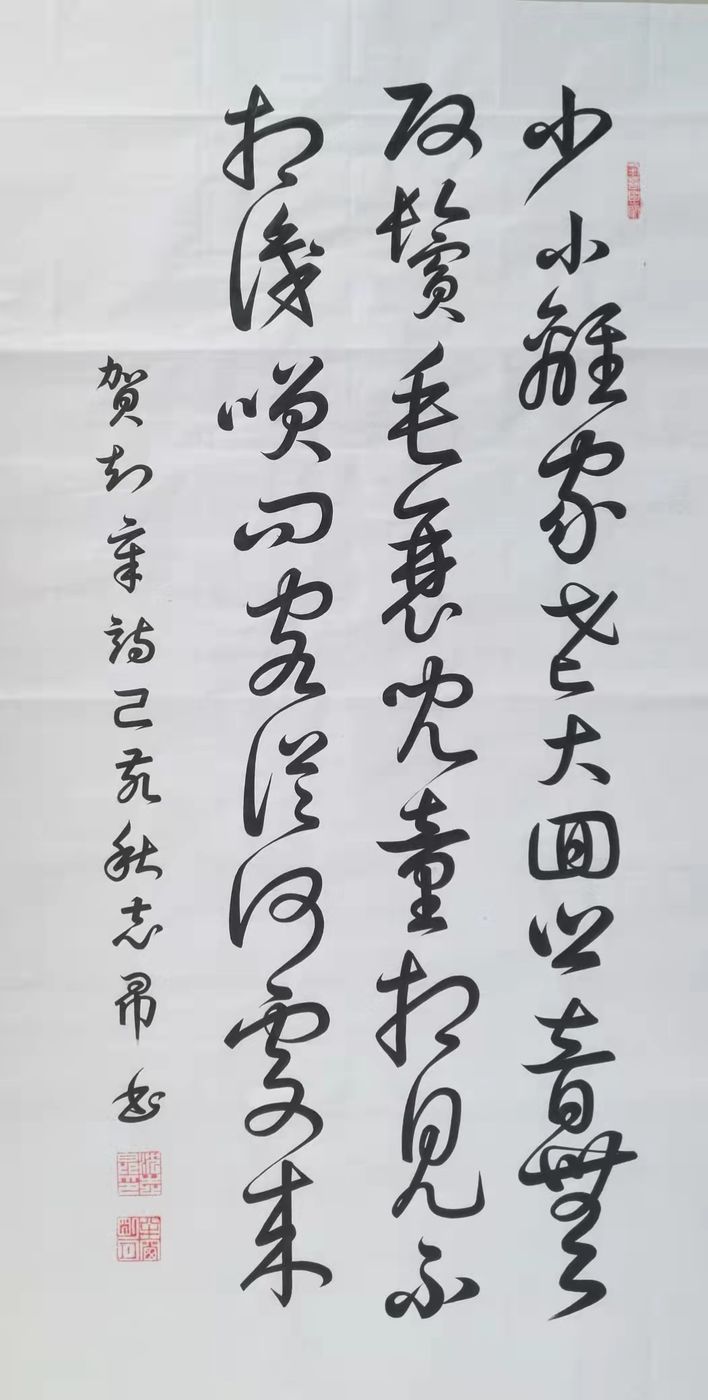 少小離家老大囬鄉音無
改鬢毛衰兒童相見不
相識咲問客從何處来
賀知章詩己亥秋志昂書